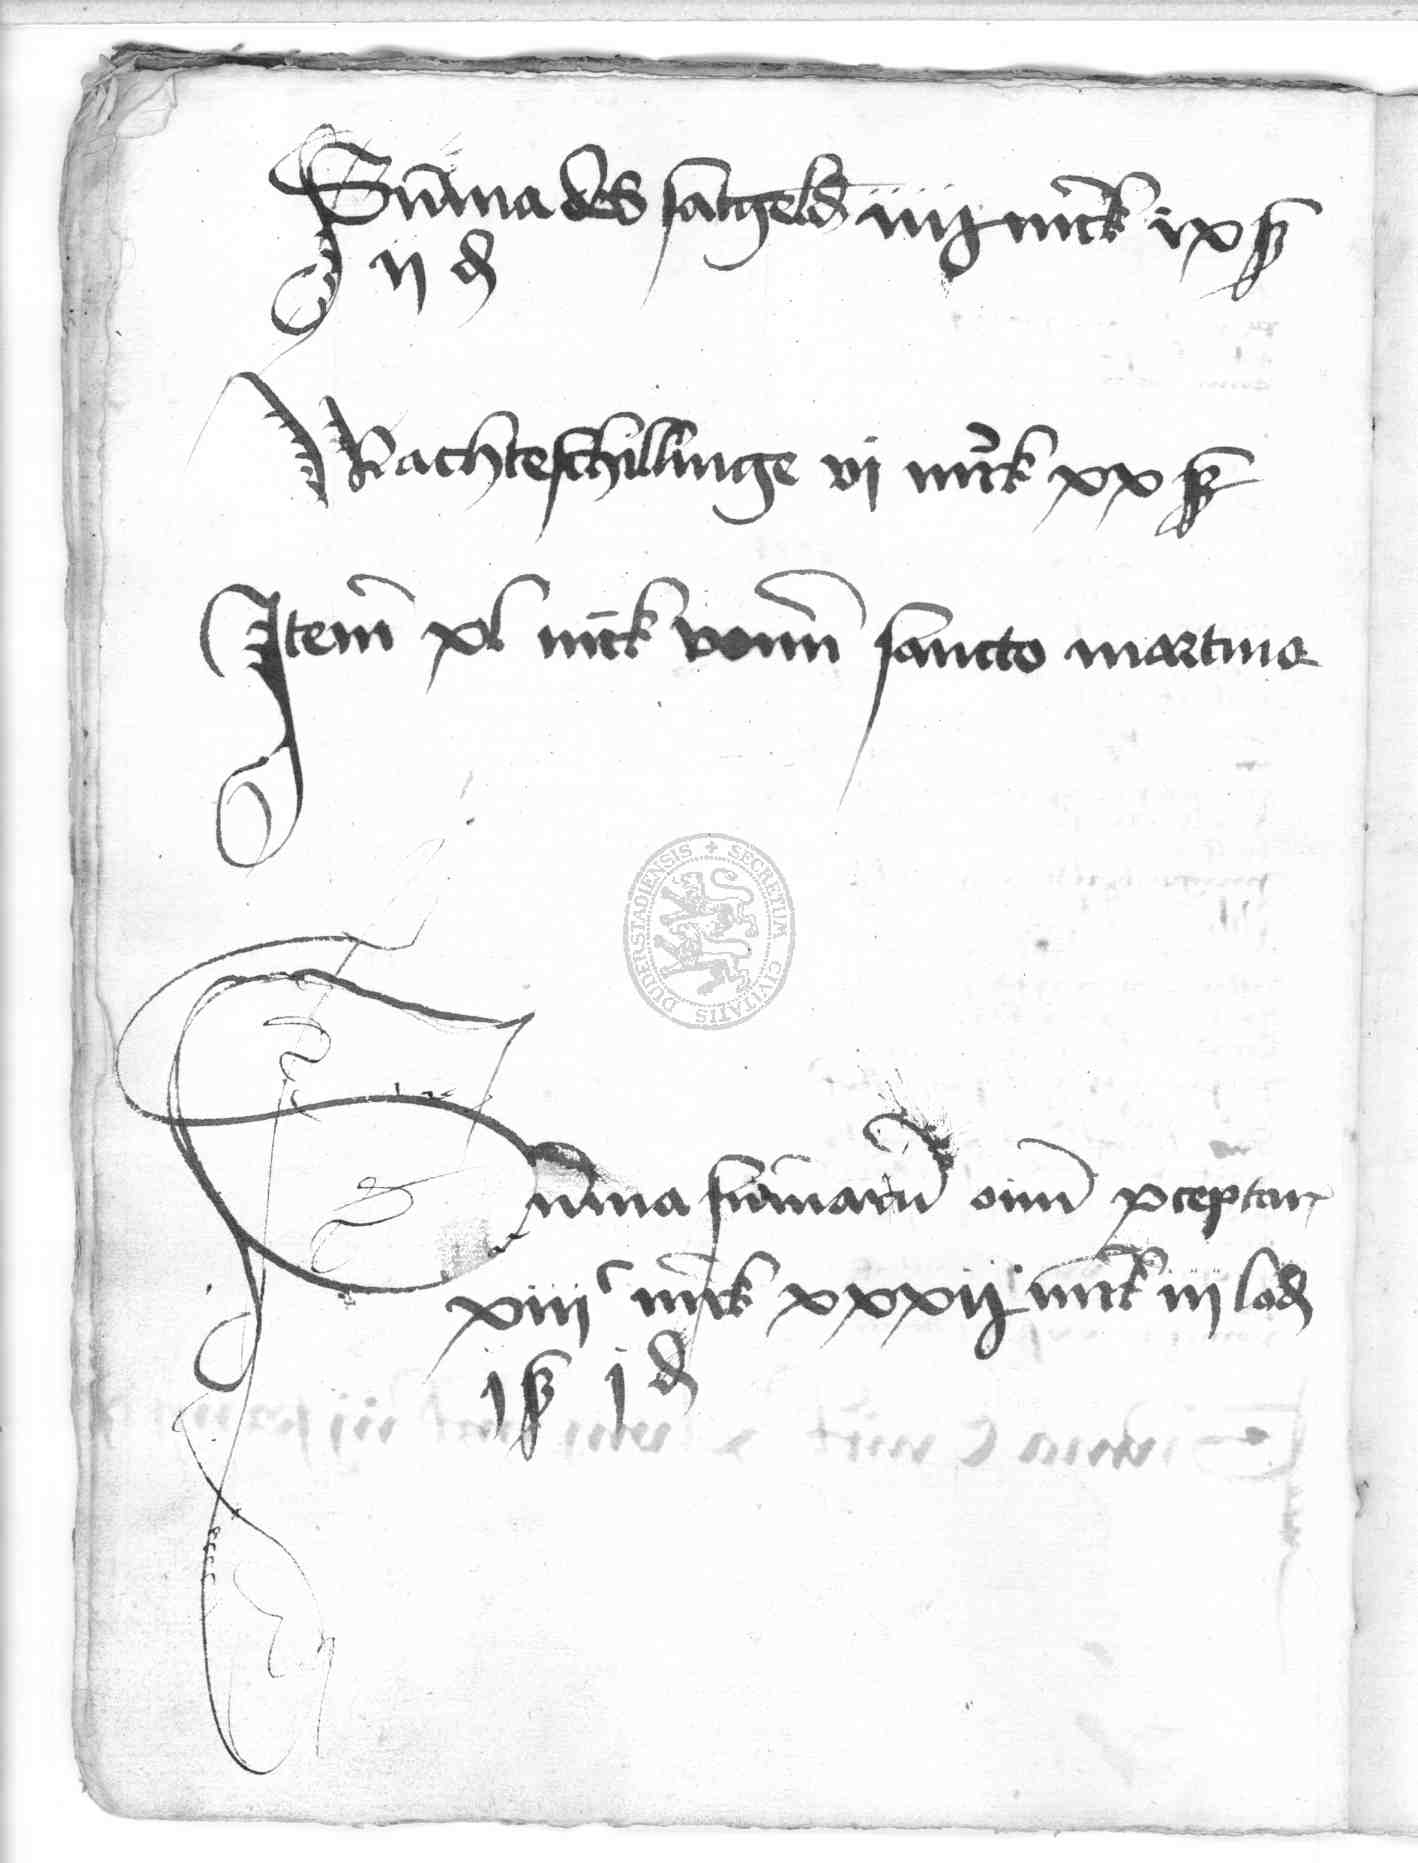 Sum̄a des satgeld iiij mrck ix ß
ij ₰
Wachteschillinge vj mrck xx ß
Item xl mrck vonn sancto martino
SECRETUM CIVITATIS DUDERSTADIENSIS
Sum̄a sum̄arū oim̄ pceptar
xiiijᶜ mrck xxxij mrck iij lod
j ß j ₰